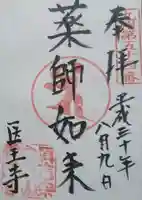 奉拝
平成三十年
八月九日
薬師如来
医王寺